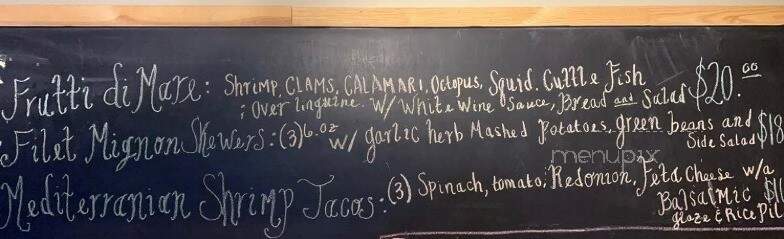 Frutti di Mare: Shrimp, CLAMS, CALAMARI, Octopus, Squid. Cuttle Fish $20.00
; Over linguine. w/ White Wine Sauce, Bread and Salad
Filet Mignon Skewers: (3) 6.oz w/ garlic herb Mashed Potatoes, green beans and $18
Side Salad
menupix
Mediterranian Shrimp Tacos: (3) Spinach, tomato, Redonion, Feta Cheese w/a
Balsalmic
glaze & Rice